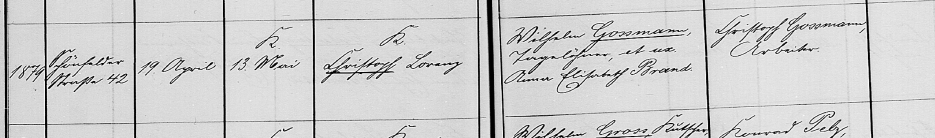 1879
Schönfelder
Straße 42
19 April
K
13. Mai
K.
Christoph Lorenz
Wilhelm Gossmann,
Tagelöhner, et ux.
Anna Elisabeth Brand.
Christoph Gossmann,
Arbeiter.
Wilhelm Gross, Kutscher,
Konrad Pelz,